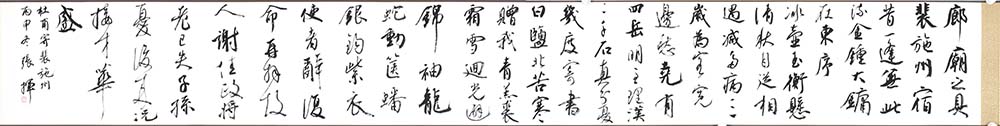 廊廟之具
裴施州宿
昔一逢無此
流金鐘大鏞
在東序
冰壺玉衡懸
清秋自從相
遇減多病三
歲為客寬
邊愁堯有
四岳明至理漢
二千石真分憂
幾度寄書
白鹽北苦寒
贈我青羔裘
霜雪迴光避
錦袖龍
蛇動篋蟠
銀鉤紫衣
使者辭復
命再拜故
人謝佳政將
老已失子孫
憂後來況
接才華
盛
杜甫寄裴施州
丙申冬張輝